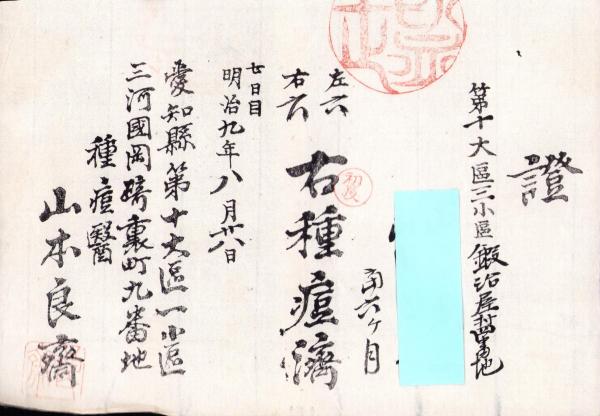 證
第十大區三小區鍛冶屋村番地
六ヶ月
初度
右種痘濟
左六
右六
七日目
明治九年八月廿八日
愛知縣第十大區一小區
三河國岡﨑裏町九番地
種痘醫
山本良齋